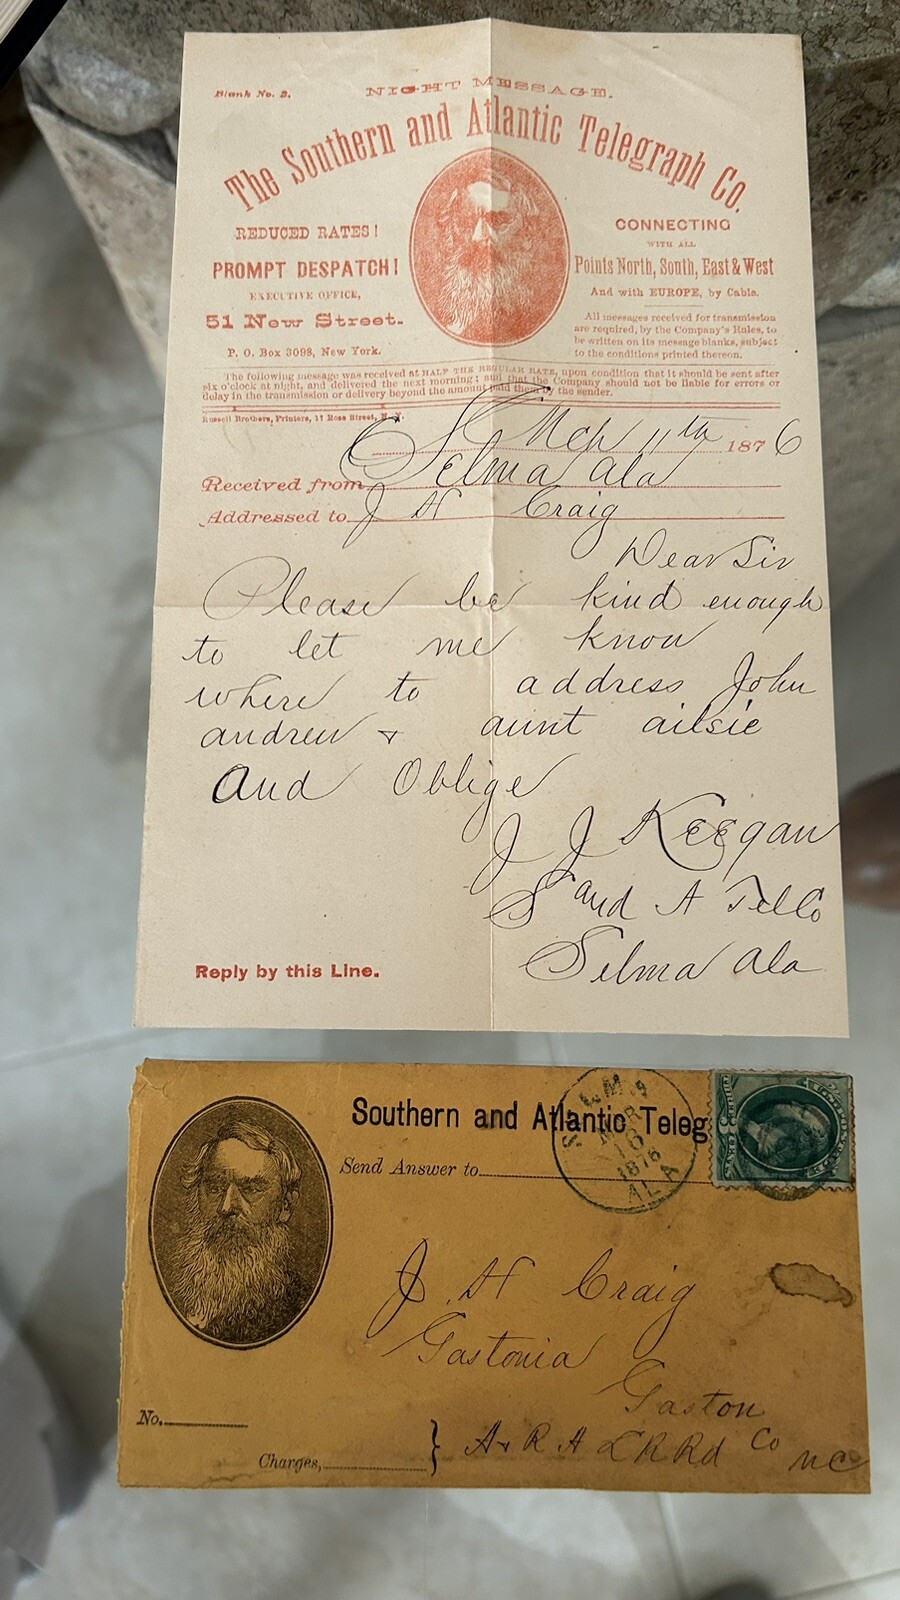 Blank No. 2.
NIGHT MESSAGE.
The Southern and Atlantic Telegraph Co.
REDUCED RATES!
PROMPT DESPATCH!
EXECUTIVE OFFICE,
51 New Street.
P. O. Box 3098, New York.
CONNECTING
WITH ALL
Points North, South, East & West
And with EUROPE, by Cable.
All messages received for transmission
are required, by the Company's Rules, to
be written on its message blanks, subject
to the conditions printed thereon.
The following message was received at HALF THE REGULAR RATE, upon condition that it should be sent after
six o'clock at night, and delivered the next morning; and that the Company should not be liable for errors or
delay in the transmission or delivery beyond the amount paid them by the sender.
Russell Brothers, Printers, 17 Rose Street, N. Y.
Mch 11th 1876
Received from Selma Ala
Addressed to J H Craig
Dear Sir
Please be kind enough
to let me know
where to address John
andrew + aunt ailsie
And Oblige
J J Keegan
S and A Tel Co
Selma Ala
Reply by this Line.
Southern and Atlantic Teleg
Send Answer to
SELMA
MAR
16
1876
ALA
J. H Craig
Gastonia
Gaston
Co
A + R A L R Rd
NC
No.
Charges,